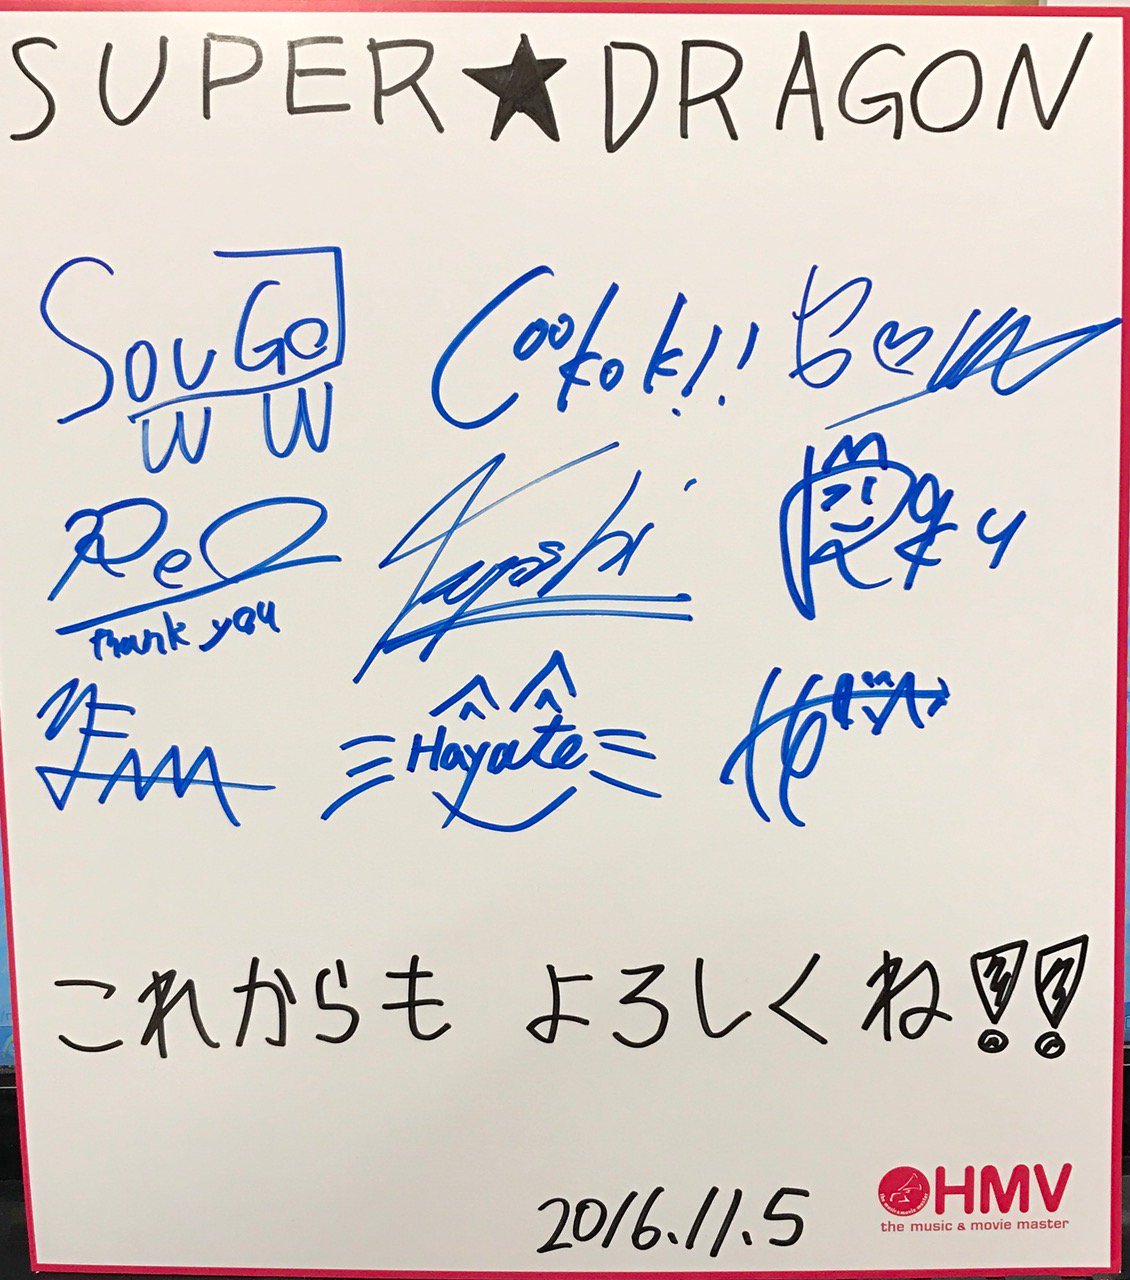 SUPER★DRAGON
SouGo
Cookok!!
ReO
Thank you
Hayate
これからも よろしくね!!
2016.11.5
HMV
the music & movie master